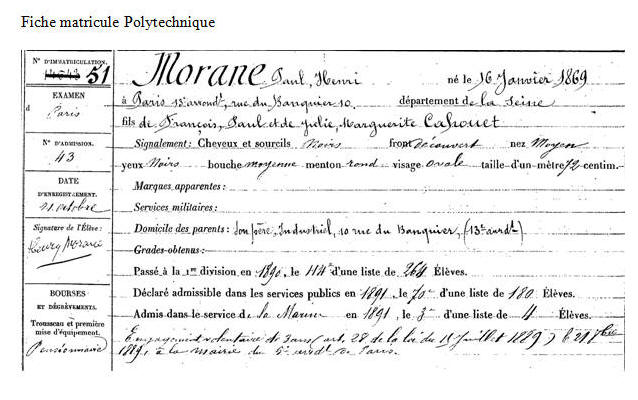 Fiche matricule Polytechnique
N° D'IMMATRICULATION.
51
EXAMEN
d Paris
N° D'ADMISSION.
43
DATE
D'ENREGISTREMENT.
21 octobre
Signature de l'Élève :
Henry Morane
BOURSES
ET DÉGRÈVEMENTS.
Trousseau et première
mise d'équipement.
Pensionnaire
Morane Paul, Henri né le 16 Janvier 1869
à Paris 13e arrondt, rue du Banquier 10. département de la Seine
fils de François, Paul et de Julie, Marguerite Cahouet
Signalement: Cheveux et sourcils Noirs front Découvert nez Moyen
yeux Noirs bouche moyenne menton rond visage ovale taille d'un mètre 72 centim.
Marques apparentes :
Services militaires :
Domicile des parents : son père, Industriel, 10 rue du Banquier, (13e arrdt)
Grades obtenus :
Passé à la 1re division en 1890, le 114e d'une liste de 264 Élèves.
Déclaré admissible dans les services publics en 1891, le 70e d'une liste de 180 Élèves.
Admis dans le service de la Marine en 1891, le 3e d'une liste de 4 Élèves.
Engagement volontaire de 3 ans (art. 28 de la loi du 15 Juillet 1889) le 21 7bre
1889, à la mairie du 5e arrdt de Paris.